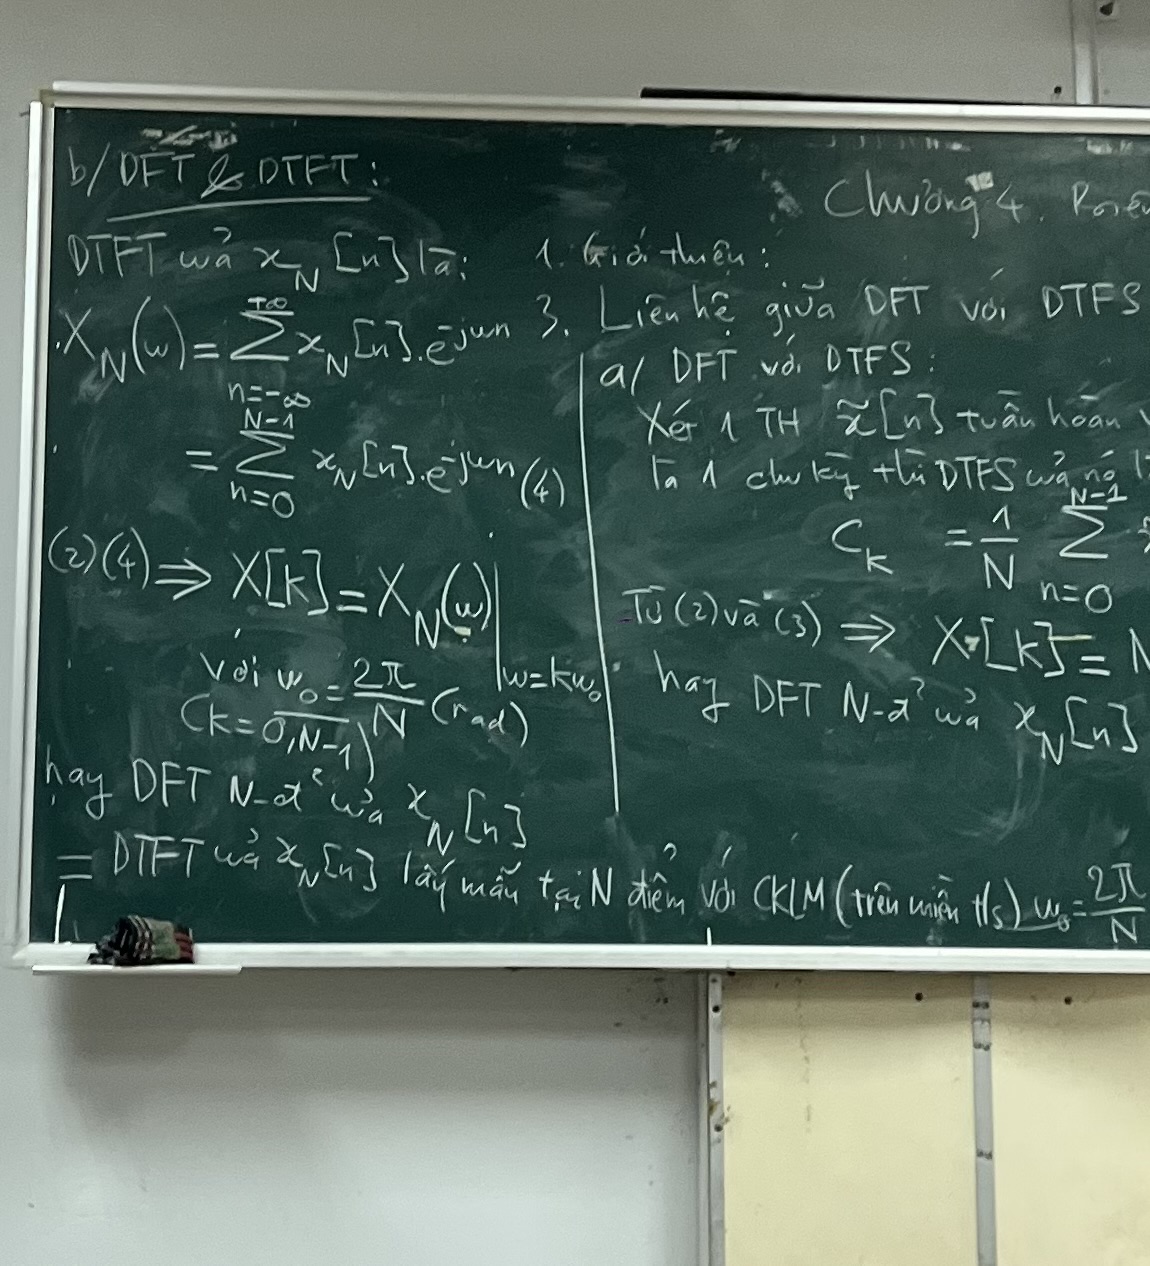 b/ DFT & DTFT:
DTFT của x_N[n] là:
X_N(ω) = ∑_{n=-∞}^{+∞} x_N[n].e^{-jωn}
= ∑_{n=0}^{N-1} x_N[n].e^{-jωn} (4)
(2)(4) ⇒ X[k] = X_N(ω)|_{ω=kω₀}
với ω₀ = 2π/N (rad)
(k = 0,N-1)
hay DFT N-đ² của x_N[n]
= DTFT của x_N[n] lấy mẫu tại N điểm với CKLM (trên miền t/s) ω₀ = 2π/N
Chương 4.
1. Giới thiệu:
3. Liên hệ giữa DFT với DTFS
a/ DFT với DTFS:
Xét 1 TH x̃[n] tuần hoàn
là 1 chu kỳ thì DTFS của nó
C_k = 1/N ∑_{n=0}^{N-1}
Từ (2) và (3) ⇒ X[k] = N
hay DFT N-đ² của x_N[n]